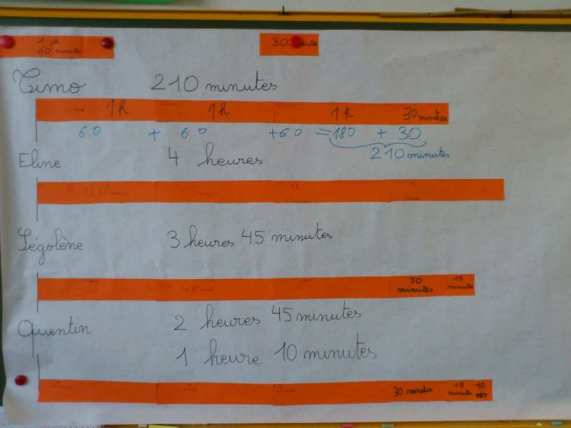 1 h
60 minutes
30 minutes
Timo 210 minutes
1h 1h 1h 30 minutes
60 + 60 +60 = 180 + 30
210 minutes
Eline 4 heures
Ségolène 3 heures 45 minutes
30 minutes 15 minutes
Quentin 2 heures 45 minutes
1 heure 10 minutes
30 minutes 15 minutes 10